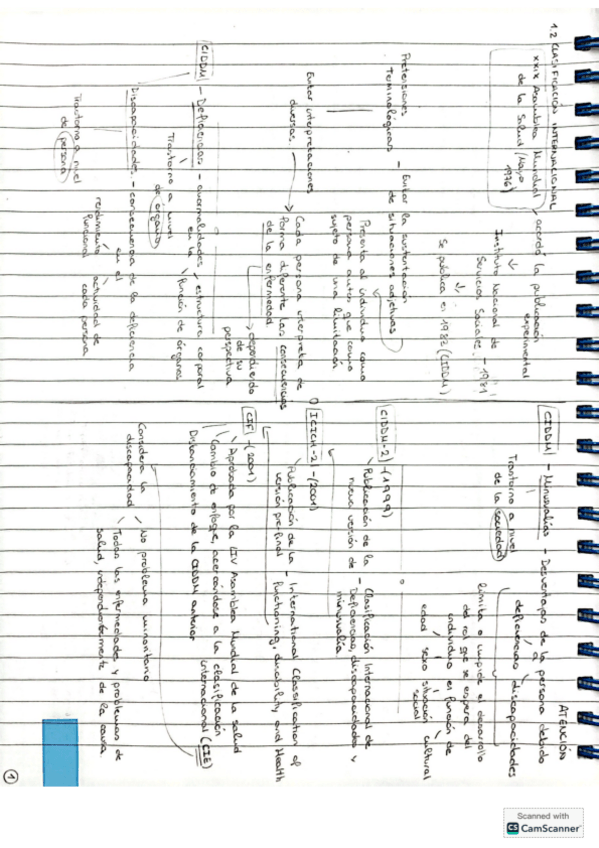 1.2 CLASIFICACIÓN INTERNACIONAL
XXIX Asamblea Mundial
de la Salud (Mayo
1976)
acordó la publicación
experimental
Instituto Nacional de
Servicios Sociales. - 1981
Se publica en 1982 (CIDDM)
Pretensiones
Terminológicas
- Evitar la sustentación
de situaciones adjetivas
Presenta al individuo como
persona antes que como
sujeto de una limitación
Evitar interpretaciones
diversas.
Cada persona interpreta de
forma diferente las consecuencias
de la enfermedad
dependiendo
de su
perspectiva
CIDDM - Deficiencias - anormalidades
en la
estructura corporal
función de órganos
Trastorno a nivel
de órgano
Discapacidades - consecuencia de la deficiencia
en el
rendimiento
funcional
actividad de
cada persona.
Trastorno a nivel
de persona
ATENCIÓN
CIDDM - Minusvalías - Desventajas de la persona debido
a
deficiencias discapacidades
Trastorno a nivel
de la sociedad
limita o impide el desarrollo
del rol que se espera del
individuo en función de
edad sexo situación cultural
social
CIDDM-2 - (1999)
Publicación de la
nueva versión de
- Clasificación Internacional de
Deficiencias, discapacidades y
minusvalía
ICICH-2 - (2001)
Publicación de la
versión pre final
- International Classification of
functioning, disability and Health
CIF - (2001)
Aprobada por la LIV Asamblea Mundial de la salud
Cambio de enfoque, acercándose a la clasificación
internacional (CIE)
Distanciamiento de la CIDDM anterior
Considera la
discapacidad
No problema minoritario
Todas las enfermedades y problemas de
salud, independientemente de la causa.
1
Scanned with
CS CamScanner